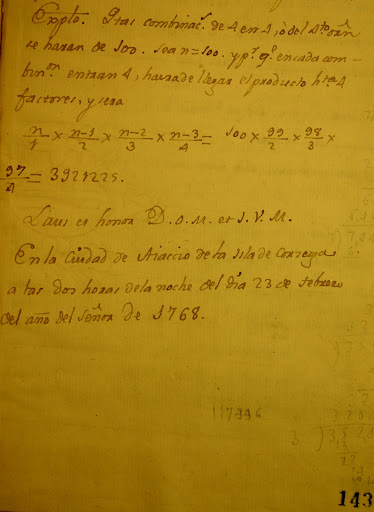 Explo. Qtas combinacs. de 4 en 4, ò del 4to orñ
se haran de 100. Sea n=100. y pr. qe. en cada com-
binon entran 4, havrà de llegar el producto hta 4
factores, y sera
n/1 × n-1/2 × n-2/3 × n-3/4 = 100 × 99/2 × 98/3 ×
97/4 = 3921225.
Laus et honor D. O. M. et I. V. M.
En la Ciudad de Aiaccio de la Isla de Corsega
a las dos horas de la noche del dia 23 de febrero
del año del Señor de 1768.
117996
3
143